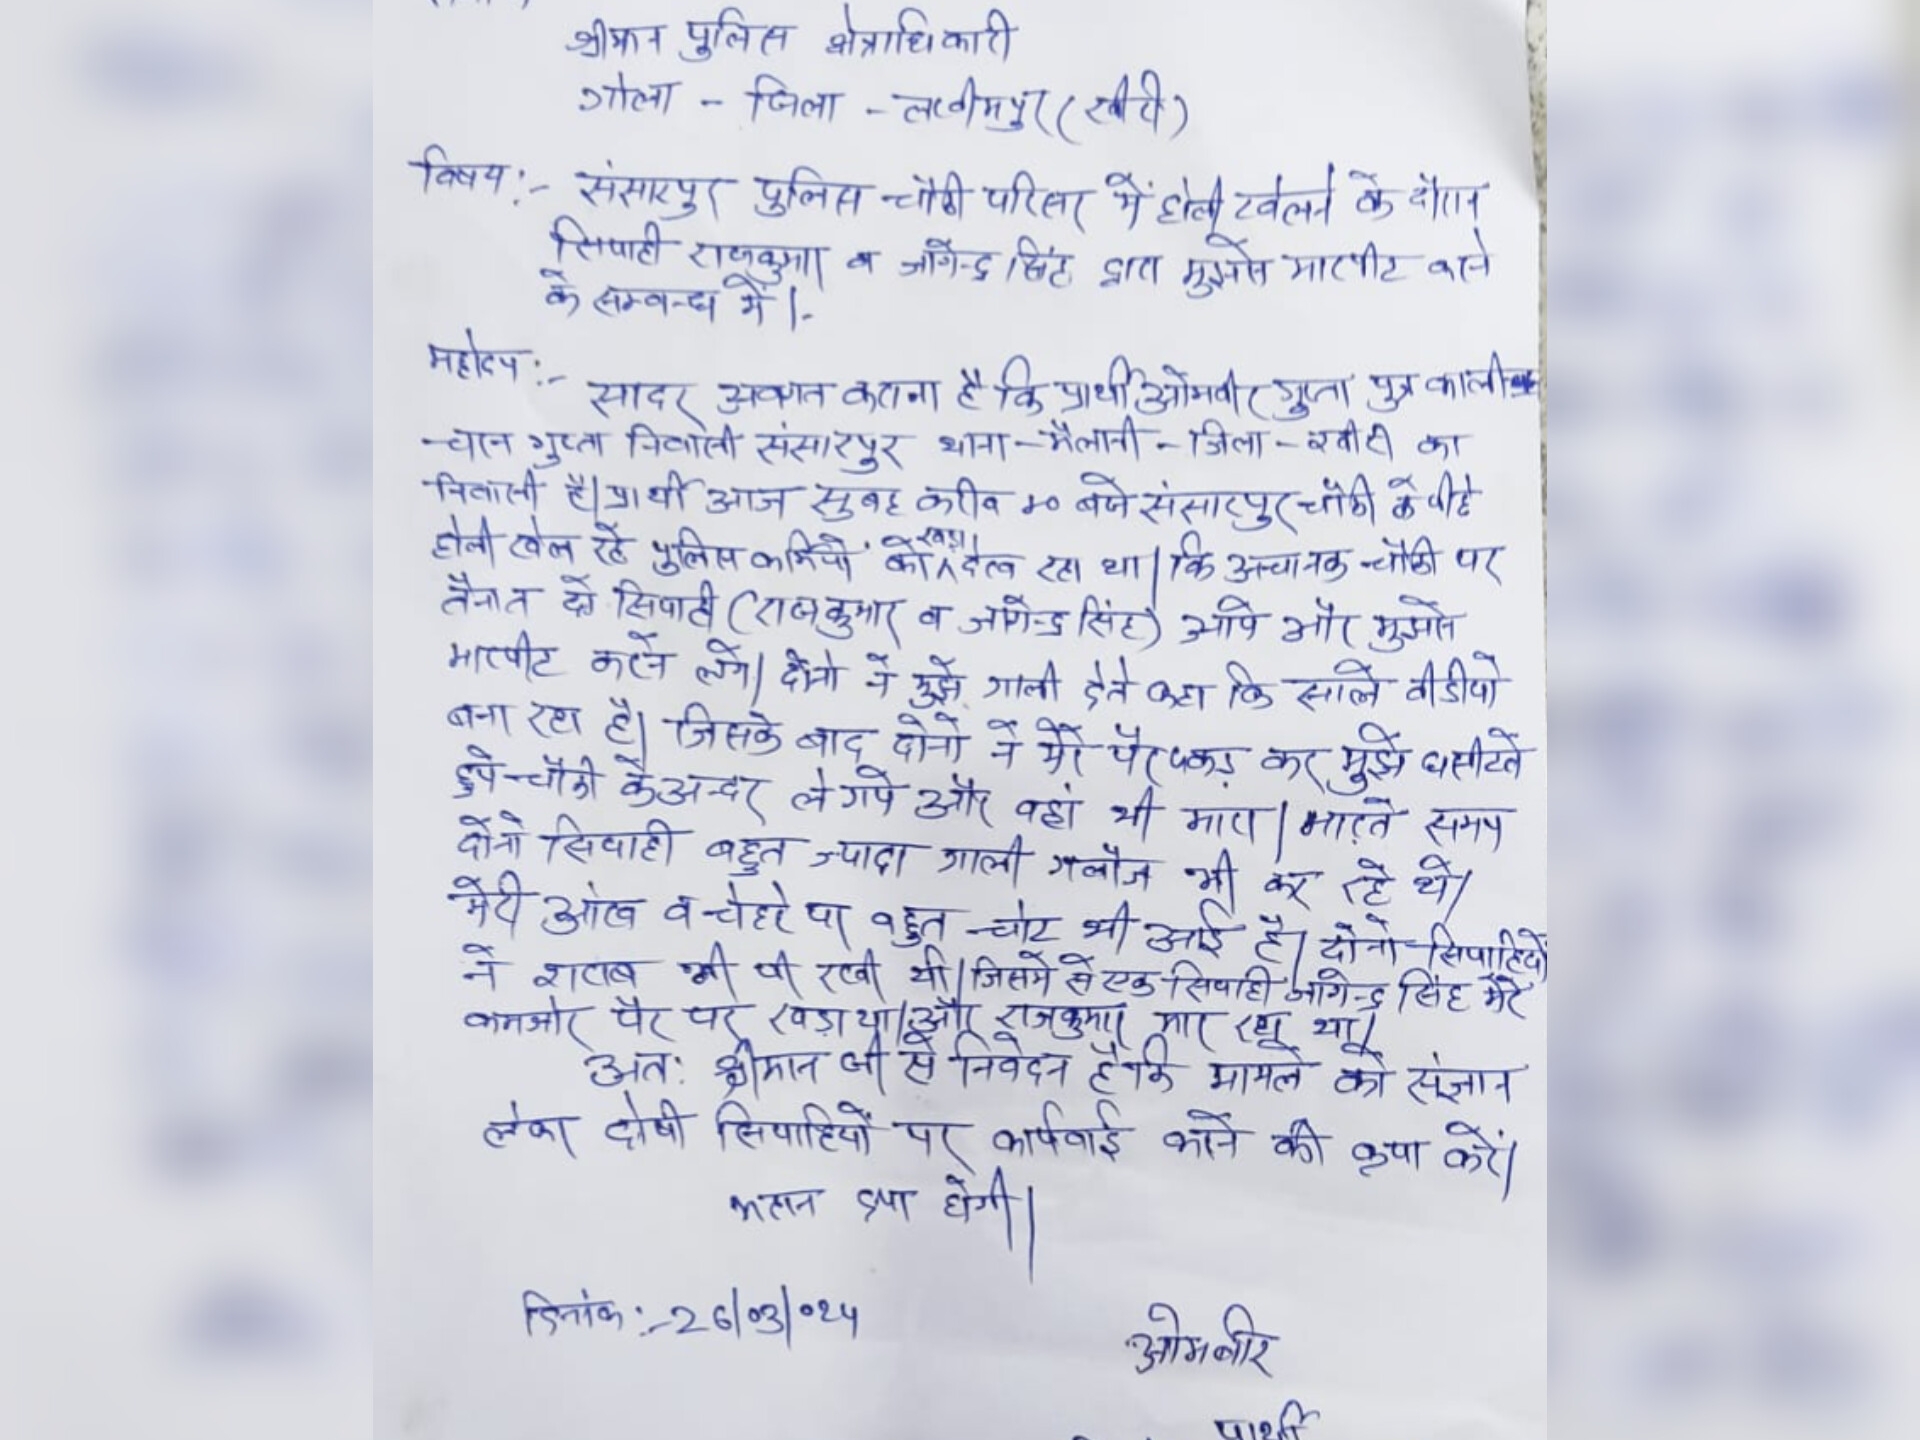 श्रीमान पुलिस क्षेत्राधिकारी
गोला - जिला - लखीमपुर (खीरी)
विषय:- संसारपुर पुलिस चौकी परिसर में होली खेलने के दौरान
सिपाही राजकुमार व जोगेन्द्र सिंह द्वारा मुझसे मारपीट करने
के सम्बन्ध में।-
महोदय:-
सादर अवगत कराना है कि प्रार्थी ओमवीर गुप्ता पुत्र काली
चरन गुप्ता निवासी संसारपुर थाना-मैलानी-जिला-खीरी का
निवासी है। प्रार्थी आज सुबह करीब १० बजे संसारपुर चौकी के पीछे
होली खेल रहे पुलिस कर्मियों को खड़ा देख रहा था। कि अचानक चौकी पर
तैनात दो सिपाही (राजकुमार व जोगेन्द्र सिंह) आये और मुझसे
मारपीट करने लगे। दोनो ने मुझे गाली देते कहा कि साले वीडीयो
बना रहा है। जिसके बाद दोनो ने मेरे पैर पकड़ कर मुझे घसीटते
हुये चौकी के अन्दर ले गये और वहां भी मारा। मारते समय
दोनो सिपाही बहुत ज्यादा गाली गलौज भी कर रहे थे।
मेरी आंख व चेहरे पर बहुत चोट भी आई है। दोनो सिपाहियों
ने शराब भी पी रखी थी। जिसमें से एक सिपाही जोगेन्द्र सिंह मेरे
कमजोर पैर पर खड़ा था। और राजकुमार मार रहा था।
अतः श्रीमान जी से निवेदन है कि मामले को संज्ञान
लेकर दोषी सिपाहियों पर कार्यवाई करने की कृपा करें।
महान दया होगी।
दिनांक:-26/03/024
ओमवीर
प्रार्थी